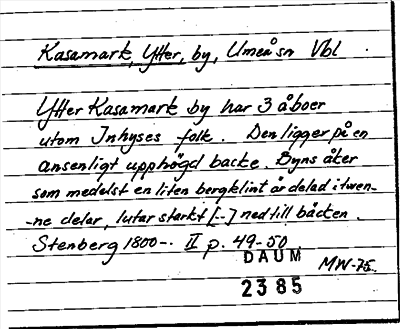 Kasamark, Ytter, by, Umeå sn Vbl
Ytter Kasamark by har 3 åboer
utom Inhyses folk. Den ligger på en
ansenligt upphögd backe. Byns åker
som medelst en liten bergklint är delad i twen-
-ne delar, lutar starkt [-] ned till bäcken.
Stenberg 1800-. II p. 49-50
DAUM
MW-75.
2385